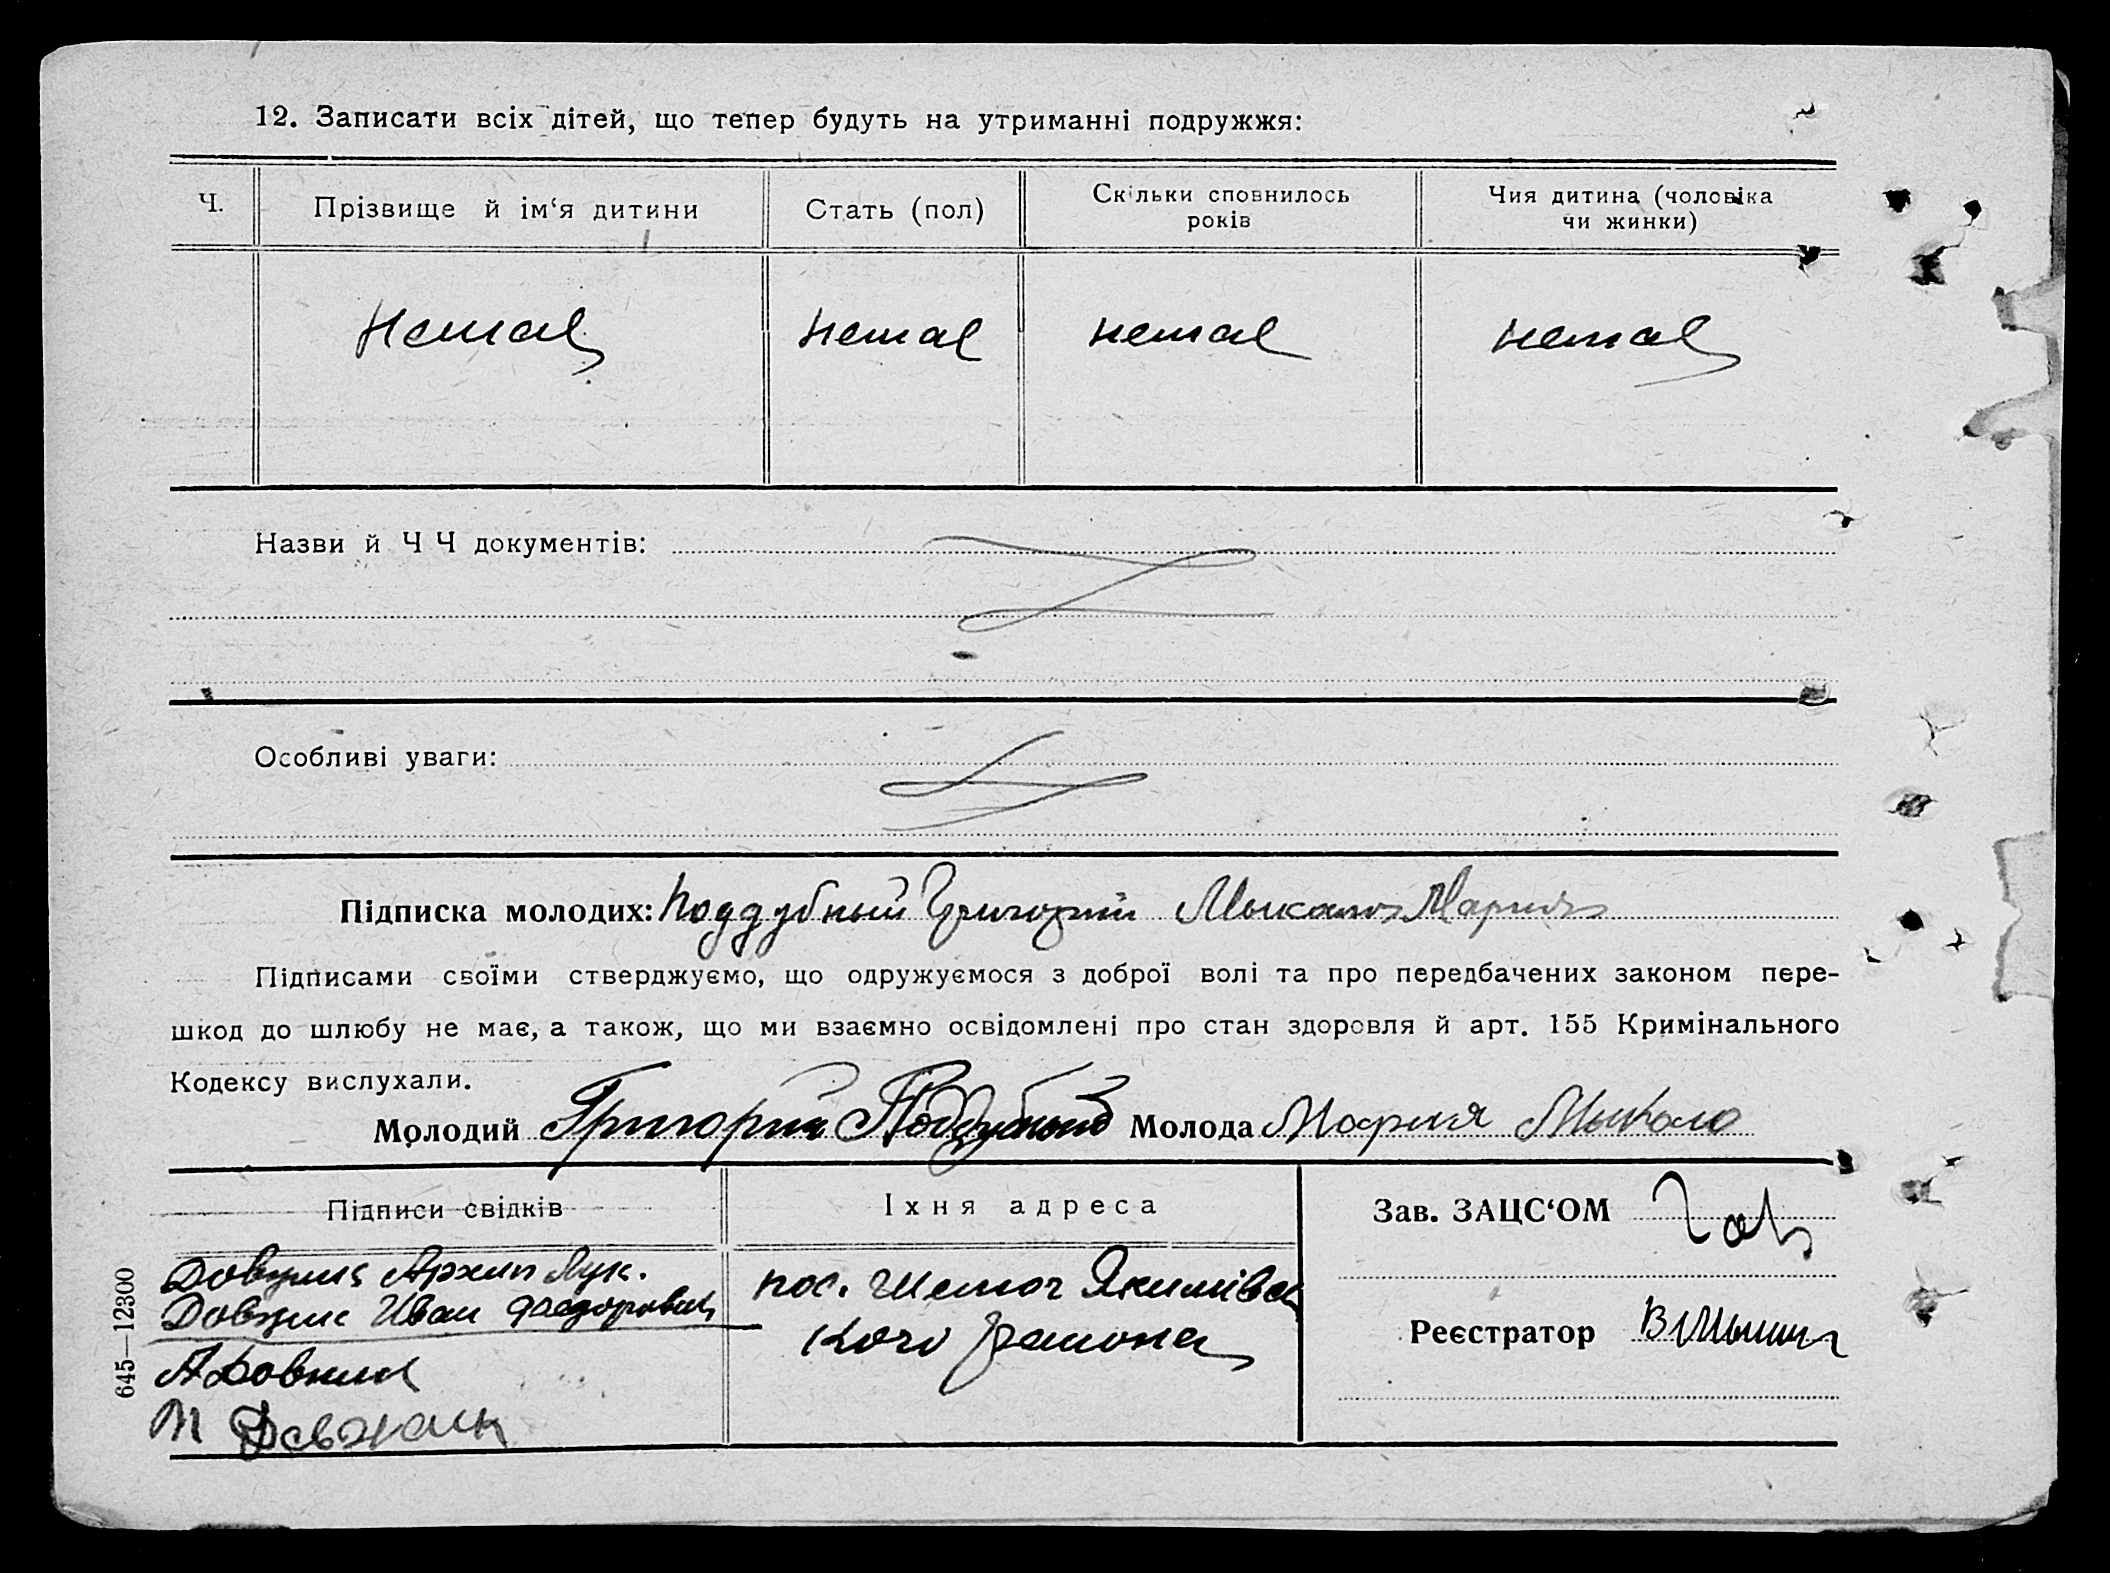 12. Записати всіх дітей, що тепер будуть на утриманні подружжя:
Ч. Прізвище й ім‘я дитини Стать (пол) Скільки сповнилось років Чия дитина (чоловіка чи жинки)
Немає Немає немає немає
Назви й Ч Ч документів:
Особливі уваги:
Підписка молодих: Поддубный Григорий Мыкало Мария
Підписами своїми стверджуємо, що одружуємося з доброї волі та про передбачених законом пере-
шкод до шлюбу не має, а також, що ми взаємно освідомлені про стан здоровля й арт. 155 Кримінального
Кодексу вислухали.
Молодий Григорий Поддубный Молода Мария Мыкало
Підписи свідків Їхня адреса Зав. ЗАЦС‘ОМ
Архип Лук.
Иван Федорович
пос. Якимівсь
кого району
Реєстратор
645—12300